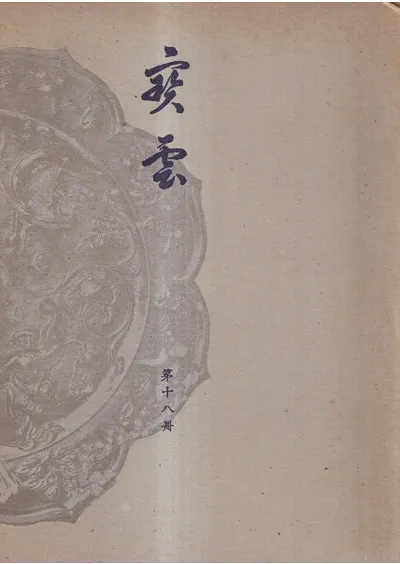 寳雲
第十八冊